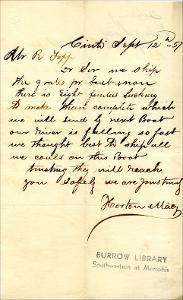 Cinti Sept 12th 57
Mr R. Topp
Dr Sir we ship
the goods pr fast man
there is Eight fender lacking
to make them complete which
we will send by next Boat
our River is falling so fast
we thought best to ship all
we could on this Boat
trusting they will reach
you safely we are yours truly
Horton & Macy
BURROW LIBRARY
Southwestern at Memphis